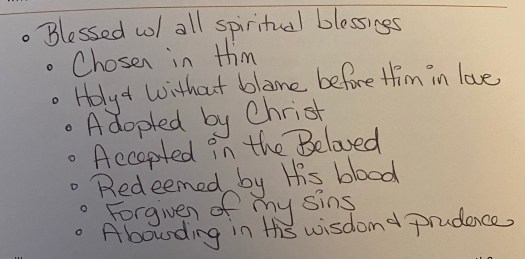 • Blessed w/ all spiritual blessings
• Chosen in Him
• Holy & Without blame before Him in love
• Adopted by Christ
• Accepted in the Beloved
• Redeemed by His blood
• Forgiven of my sins
• Abounding in His wisdom & prudence